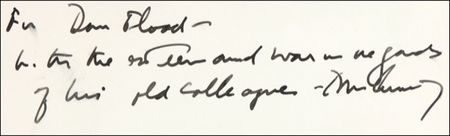 For Dan Flood -
with the esteem and warm regards
of his old colleague -